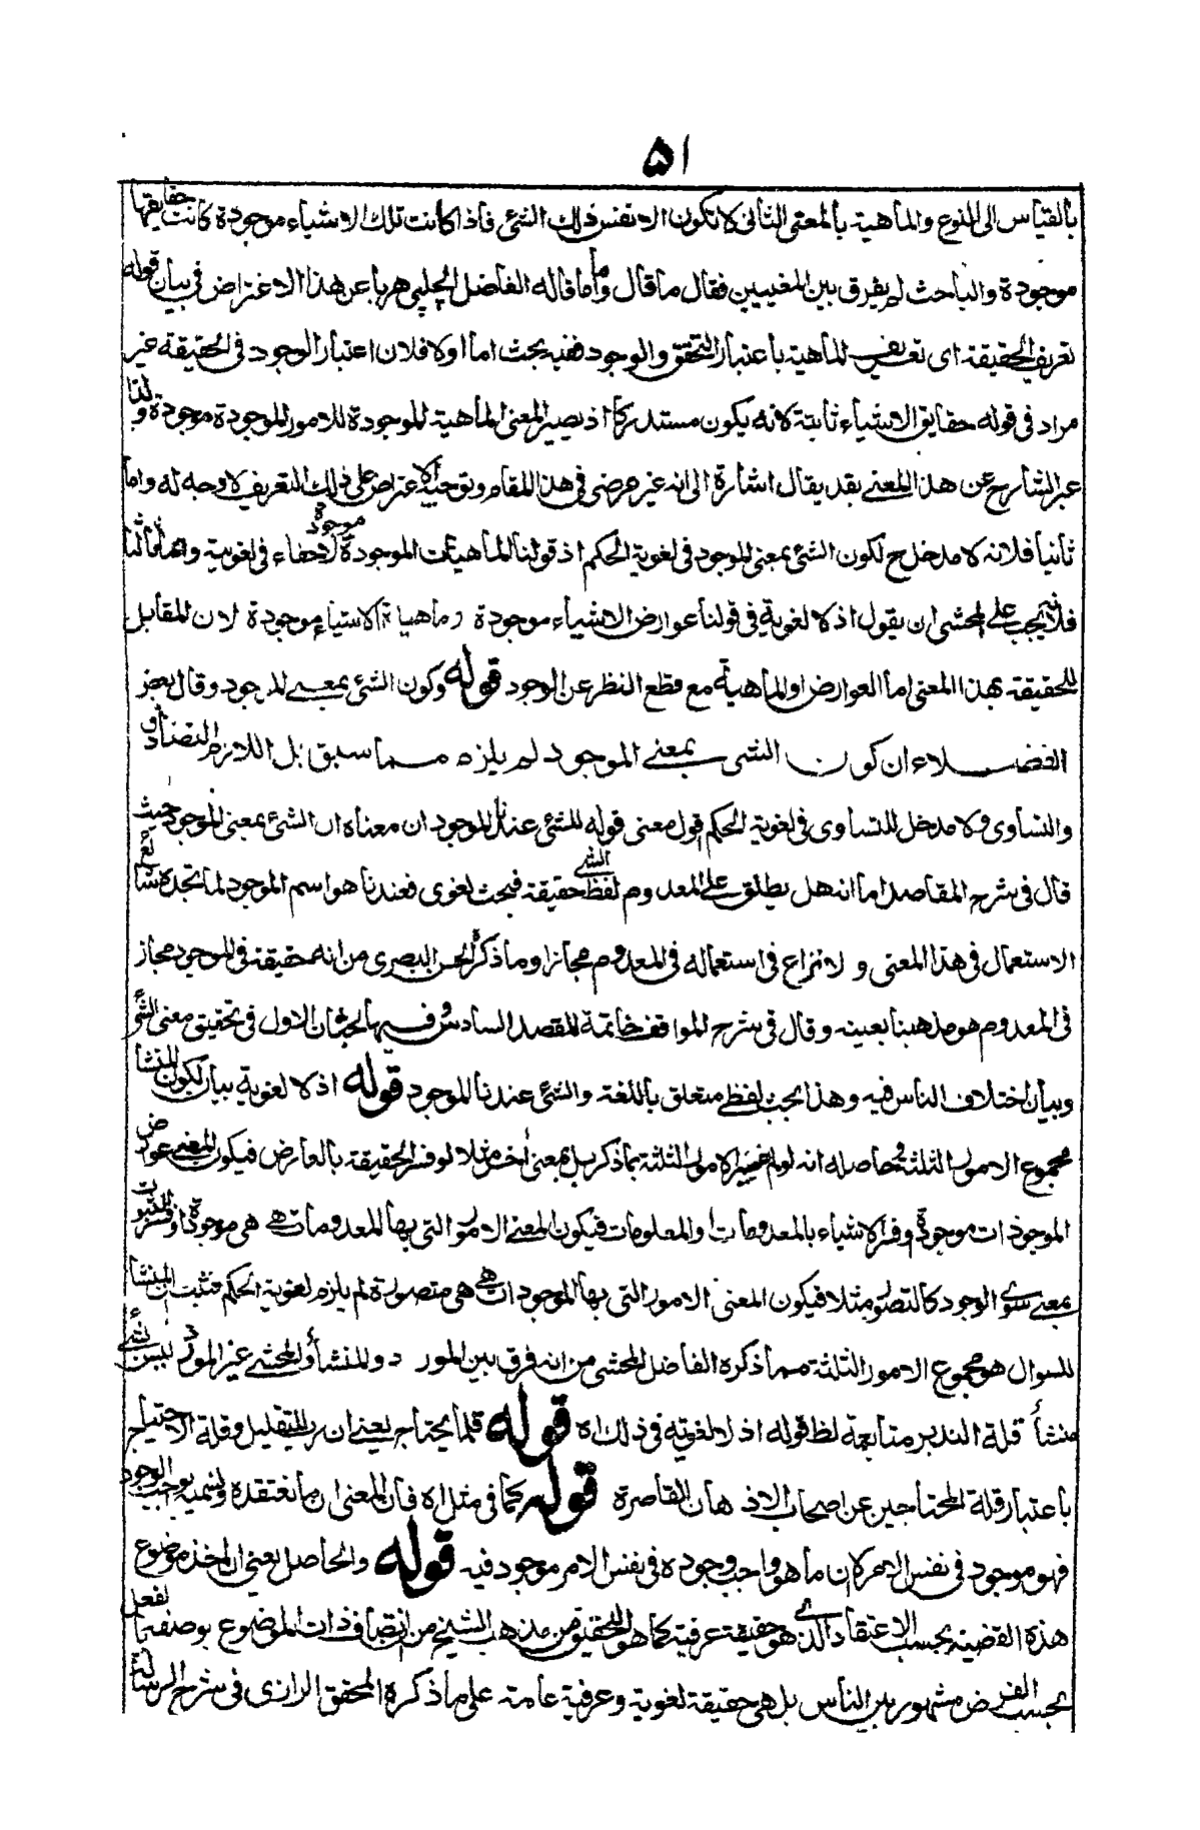 ٥١
بالقياس الى النوع والماهية بالمعنى الثانى لا تكون الا نفس ذلك الشئ فاذا كانت تلك الاشياء موجودة كانت حقايقها
موجودة والباحث لم يفرق بين المغييين فقال ما قال واما ما قاله الفاضل الچلپى هربا عن هذا الاعتراض فى بيان قوله
تعريف الحقيقة اى تعريف للماهية باعتبار التحقق والوجود ففيه بحث اما اولا فلان اعتبار الوجود فى الحقيقة غير
مراد فى قوله حقايق الاشياء ثابتة لانه يكون مستدركا اذ يصير المعنى الماهية الموجودة للامور الموجودة موجودة ولذا
عبر الشارح عن هذا المعنى بقد يقال اشارة الى انه غير مرضى فى هذا المقام وتوجيه الاعتراض على ذلك التعريف لا وجه له واما
ثانيا فلانه لا مدخل ح لكون الشئ بمعنى الموجود فى لغوية الحكم اذ قولنا الماهيات الموجودة موجودة لا خفاء فى لغويية واما ثالثا
فلانه يجب على المحشى ان يقول اذ لا لغوية فى قولنا عوارض الاشياء موجودة وماهيات الاشياء موجودة لان المقابل
للحقيقة بهذا المعنى اما العوارض او الماهية مع قطع النظر عن الوجود قوله وكون الشئ بمعنى الموجود وقال بعض
الفضلاء ان كون الشى بمعنى الموجود لم يلزم مما سبق بل اللازم التصادق
والتساوى ولا مدخل للتساوى فى لغوية الحكم اقول معنى قوله الشئ عندنا الموجود ان معناه ان الشئ بمعنى الموجود حيث
قال فى شرح المقاصد اما انه هل يطلق على المعدوم لفظ الشئ حقيقة فبحث لغوى فعندنا هو اسم الموجود لما نجده شايع
الاستعمال فى هذا المعنى ولا نزاع فى استعماله فى المعدوم مجازا وما ذكره ابو الحسن البصرى من انه حقيقة فى الموجود مجاز
فى المعدوم هو مذهبنا بعينه وقال فى شرح المواقف خاتمة للمقصد السادس وفيها بحثان الاول فى تحقيق معنى الشئ
وبيان اختلاف الناس فيه وهذا بحث لفظى متعلق باللغة والشئ عندنا الموجود قوله اذ لا لغوية بيان لكون المنشأ
مجموع الامور الثلثة وحاصله انه لو لم يفسر الامور الثلثة بما ذكر بل بمعنى اخر مثلا لو فسر الحقيقة بالعارض فيكون المعنى عوارض
الموجودات موجودة او فسر الاشياء بالمعدومات والمعلومات فيكون المعنى الامور التى بها المعدومات هى هى موجودة او فسر الثبوت
بمعنى سوى الوجود كالتصور مثلا فيكون المعنى الامور التى بها الموجودات هى هى متصورة لم يلزم لغوية الحكم فثبت ان المنشأ
للسوال هو مجموع الامور الثلثة مما ذكره الفاضل المحشى من انه فرق بين المورد والمنشأ والمحشى غير المورد ليس بشئ
منشأ قلة التدبر متابعة لظ قوله اذ لا لغوية فى ذلك اه قوله قلما يحتاج يعنى ان رب للتقليل وقلة الاحتياج
باعتبار قلة المحتاجين عن اصحاب الاذهان القاصرة قوله كما فى مثل اه فان المعنى ان ما نعتقده ونسميه بواجب الوجود
فهو موجود فى نفس الامر كان ما هو واجب وجوده فى نفس الامر موجود فيه قوله والحاصل يعنى ان اخذ موضوع
هذه القضية بحسب الاعتقاد الذى هو حقيقة عرفية كما هو التحقيق من مذهب الشيخ من اتصاف ذات الموضوع بوصفه بالفعل
بحسب الفرض مشهور بين الناس بل هى حقيقة لغوية وعرفية عامة على ما ذكره المحقق الرازى فى شرح الرسالة